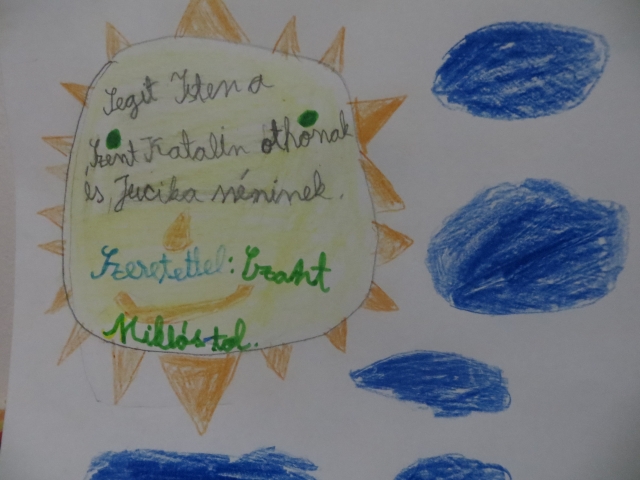 Segit Isten a
Szent Katalin othonak
és Jucika néninek.
Szeretettel: Czant
Miklóstol.